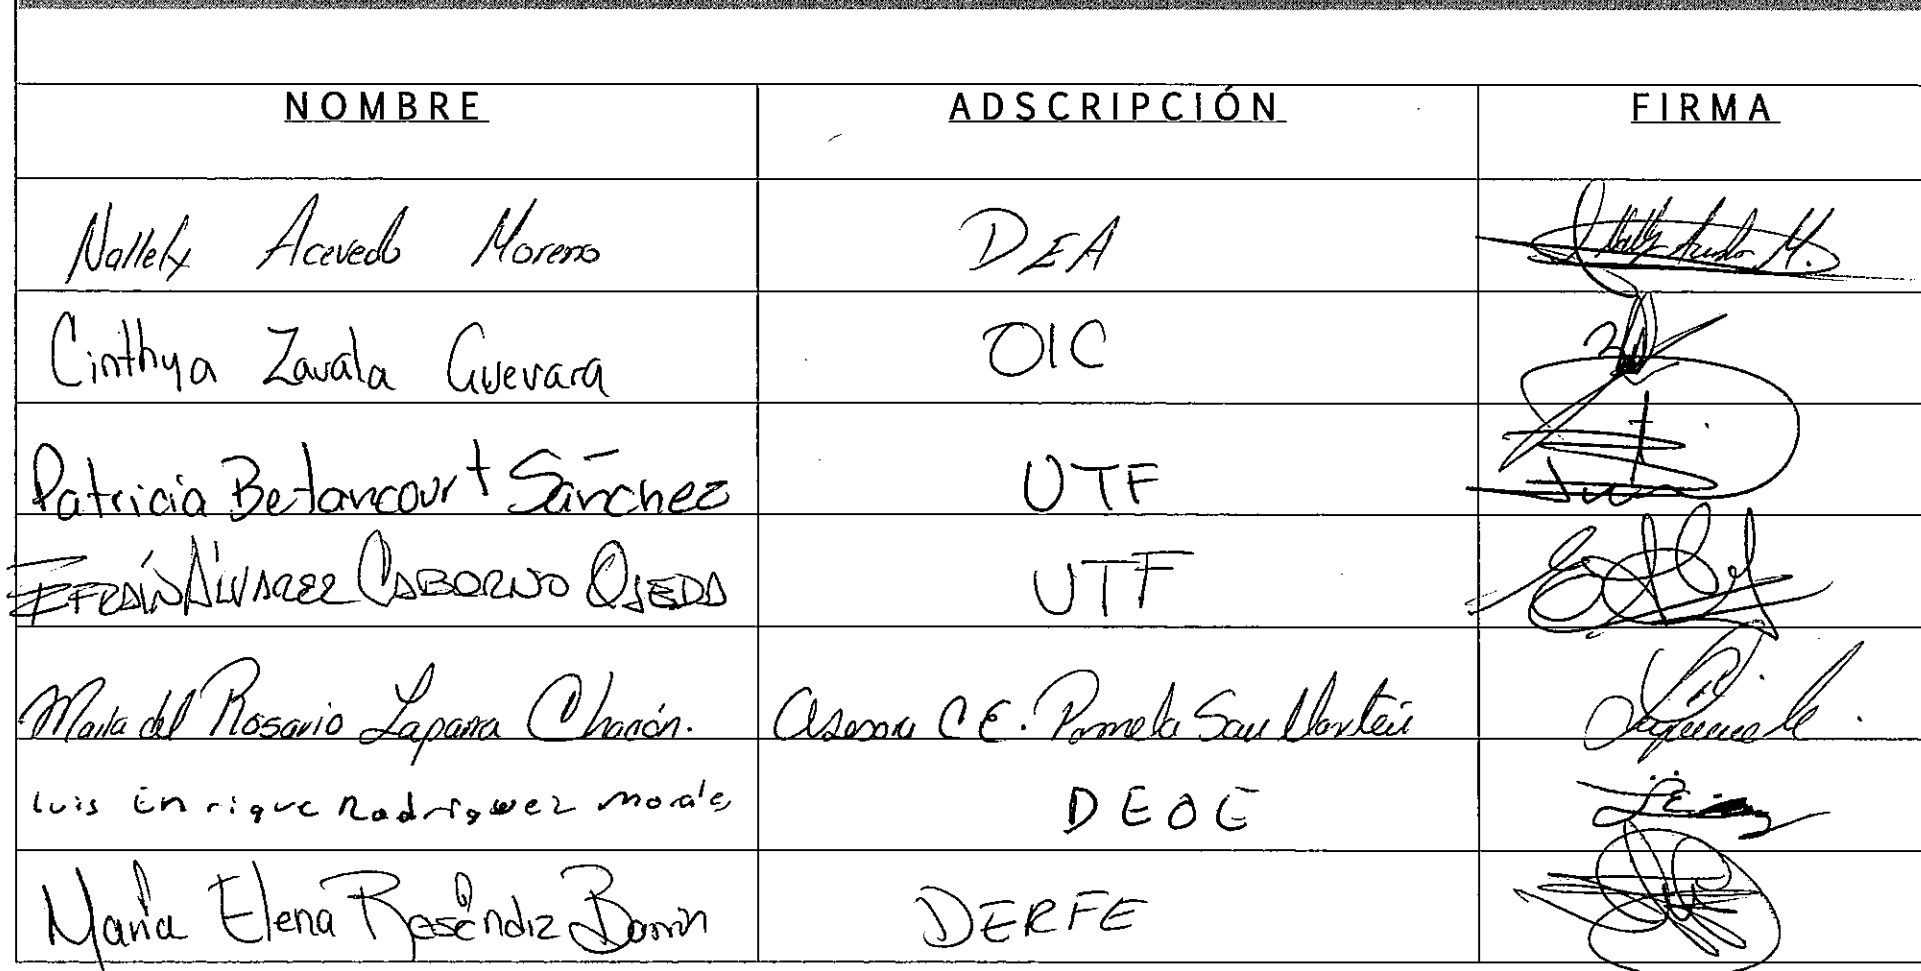 NOMBRE ADSCRIPCIÓN FIRMA
Nallely Acevedo Moreno DEA
Cinthya Zavala Guevara OIC
Patricia Betancourt Sánchez UTF
EFRAÍN ÁLVAREZ CABORNO OJEDA UTF
María del Rosario Laparra Chacón. Asesora C E. Pamela San Martín
Luis Enrique Rodriguez Morales DEOE
María Elena Reséndiz DERFE